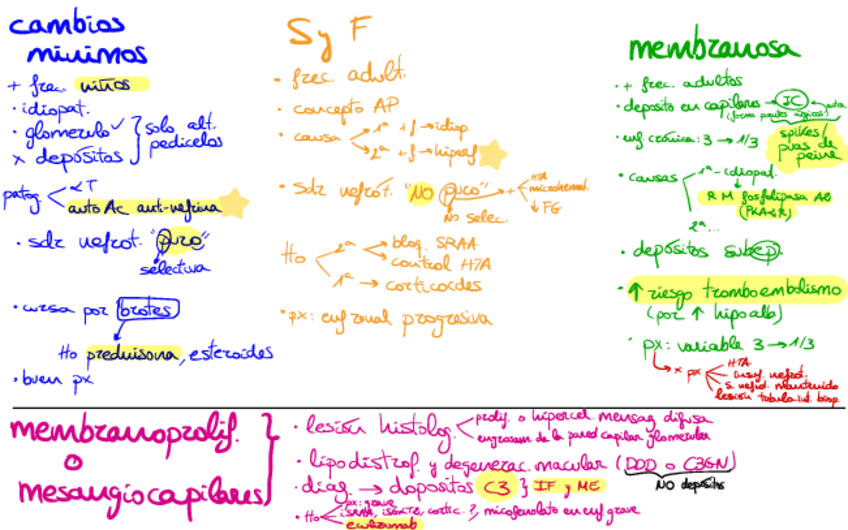 cambios
mínimos
+ frec. niños
· idiopat.
· glomérulo ✓
x depósitos
solo alt.
pedicelos
patog
LT
auto Ac anti-nefrina
· sdr nefrot. "puro"
selectiva
· cursa por brotes
tto prednisona, esteroides
· buen px
S y F
· frec. adult.
· concepto AP
· causa
1ª + f → idiop
2ª + f → hiperf
· sdr nefrót. "NO puro" +
HTA
microhemat.
↓ FG
No selec.
tto
2ª
bloq. SRAA
control HTA
1ª → corticoides
· px: enf renal progresiva
membranosa
· + frec. adultos
· deposito en capilares → IC
· enf crónica: 3 → 1/3
spikes/
púas de
peine
· causas
1ª - idiopat.
R M fosfolipasa A2
(PLA2R)
2ª ...
· depósitos subep.
· ↑ riesgo tromboembolismo
(por ↑ hipoalb)
· px: variable 3 → 1/3
x px
HTA
insuf. nefrot.
s. nefrot. mantenido
lesión tubuloint. biop.
membranoprolif.
o
mesangiocapilares
· lesión histolog.
prolif. o hipercel. mensag difusa
engrosam de la pared capilar glomerular
· lipodistrof. y degenerac. macular (DDD o C3GN)
NO depósitos
· diag → depositos C3 } IF y ME
px: grave
· tto
iSRAA, iSGLT2, cortic. ?, micofenolato en enf grave
eculizumab